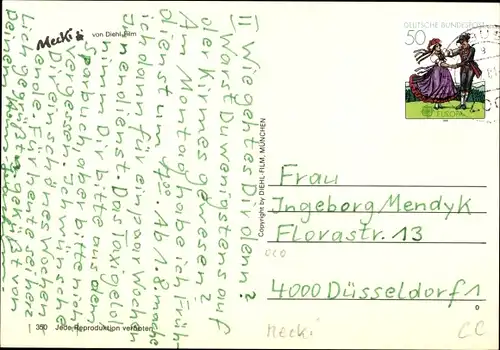 Mecki
von Diehl-Film
II Wie geht es Dir denn?
Warst Du wenigstens auf
der Kirmes gewesen?
Am Montag habe ich Früh-
dienst um 4⁰⁰. Ab 1.8. mache
ich dann für ein paar Wochen
Innendienst. Das Taxigeld
nimm Dir bitte aus dem
Sparbuch aber bitte nicht
vergessen. Ich wünsche
Dir ein schönes Wochen-
ende. Für heute sei herz-
lich gegrüßt u. geküßt von
Deinem
350 Jede Reproduktion verboten
Copyright by DIEHL-FILM, MÜNCHEN
DEUTSCHE BUNDESPOST
50
EUROPA
Frau
Ingeborg Mendyk
Florastr. 13
4000 Düsseldorf 1
Mecki
CC